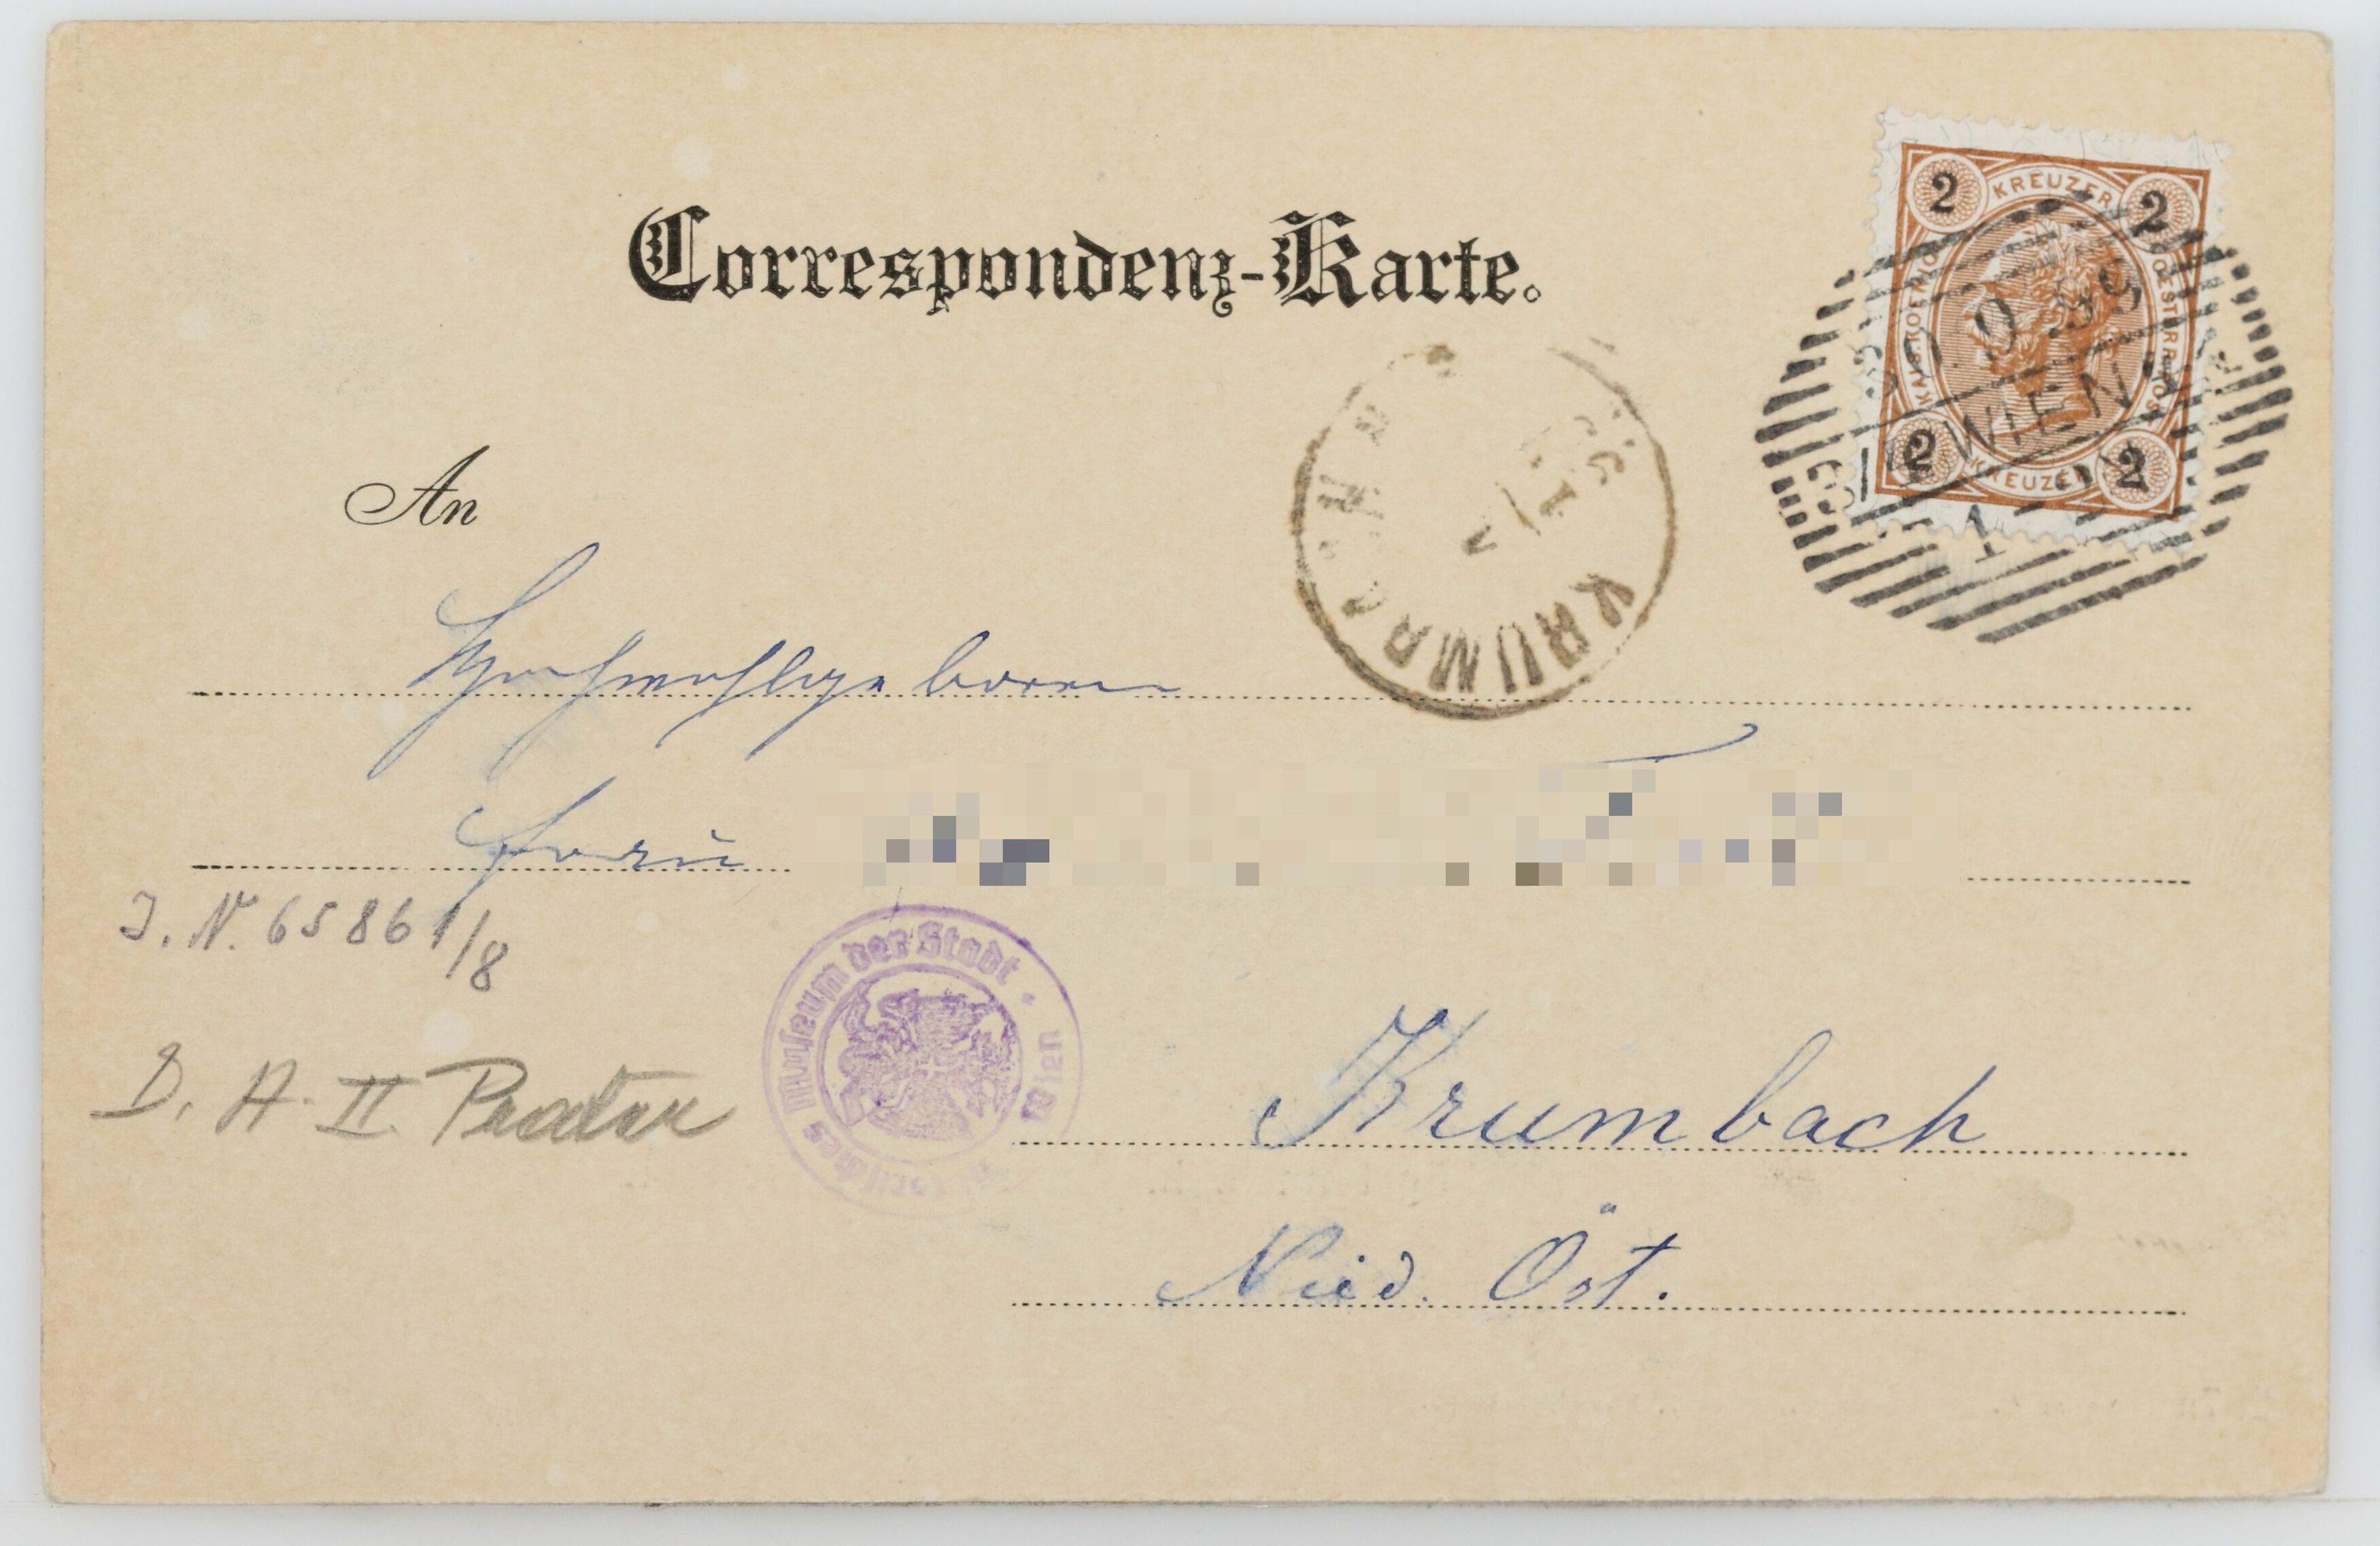 Correspondenz-Karte.
2 KREUZER 2
KAIS. KOEN. OESTERR. POST
2 KREUZER 2
9 99
WIEN
KRUMBACH
An
Hochwohlgeboren
Frau
J. N. 65861/8
Museum der Stadt Wien
D. A. II. Prater
Krumbach
Nied. Öst.